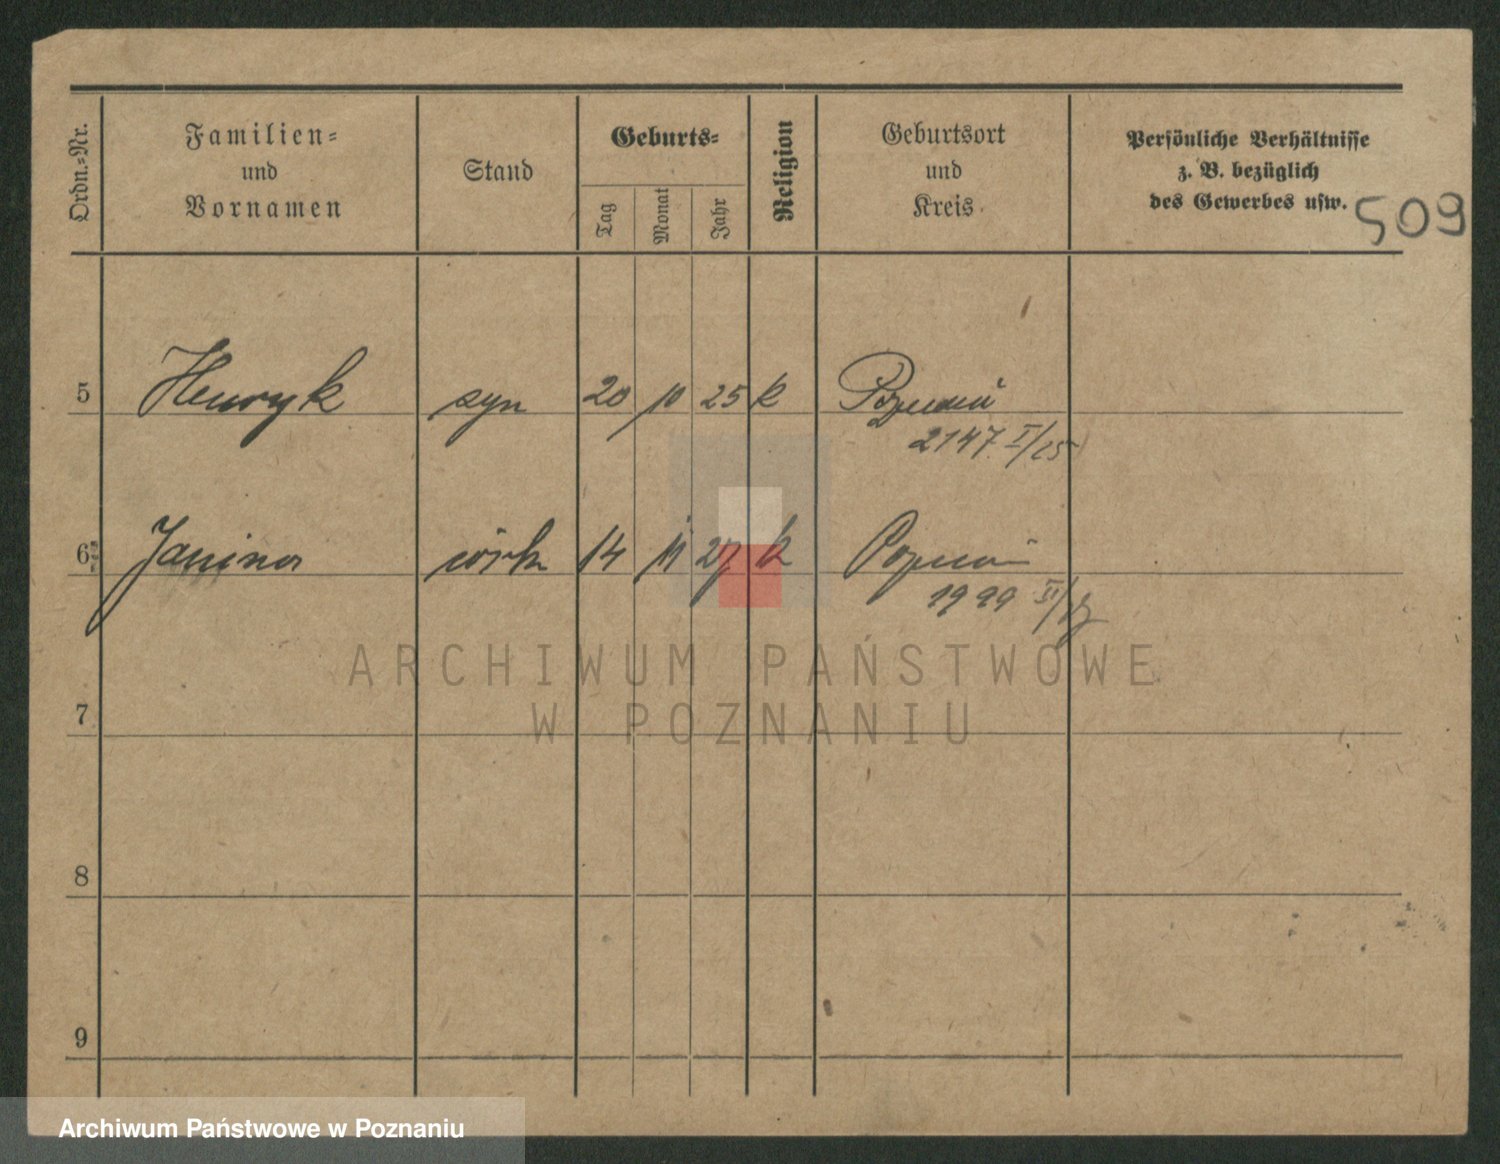 Ordn.-Nr.
Familien-
und
Vornamen
Stand
Geburts-
Tag
Monat
Jahr
Religion
Geburtsort
und
Kreis
Persönliche Verhältnisse
z. B. bezüglich
des Gewerbes usw.
509
5 Henryk syn 20 10 25 k Poznań
2147 I/25
6 Janina córka 14 11 27 k Poznań
1999
ARCHIWUM PAŃSTWOWE
W POZNANIU
7
8
9
Archiwum Państwowe w Poznaniu